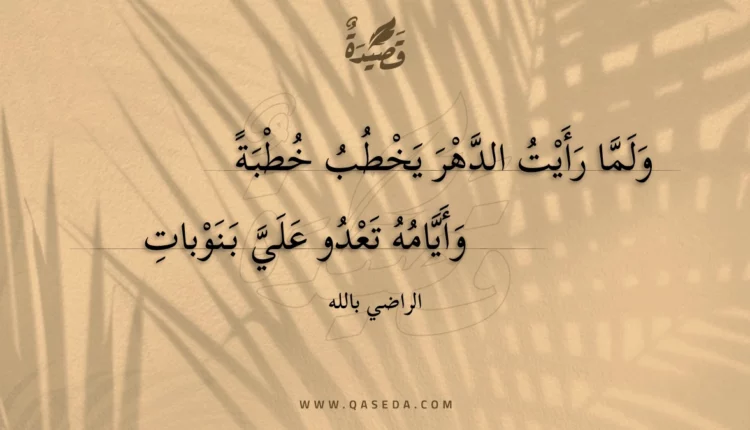 قَصِيْدَةٌ
وَلَمَّا رَأَيْتُ الدَّهْرَ يَخْطُبُ خُطْبَةً
وَأَيَّامُهُ تَعْدُو عَلَيَّ بَنَوْباتِ
الراضي بالله
WWW.QASEDA.COM